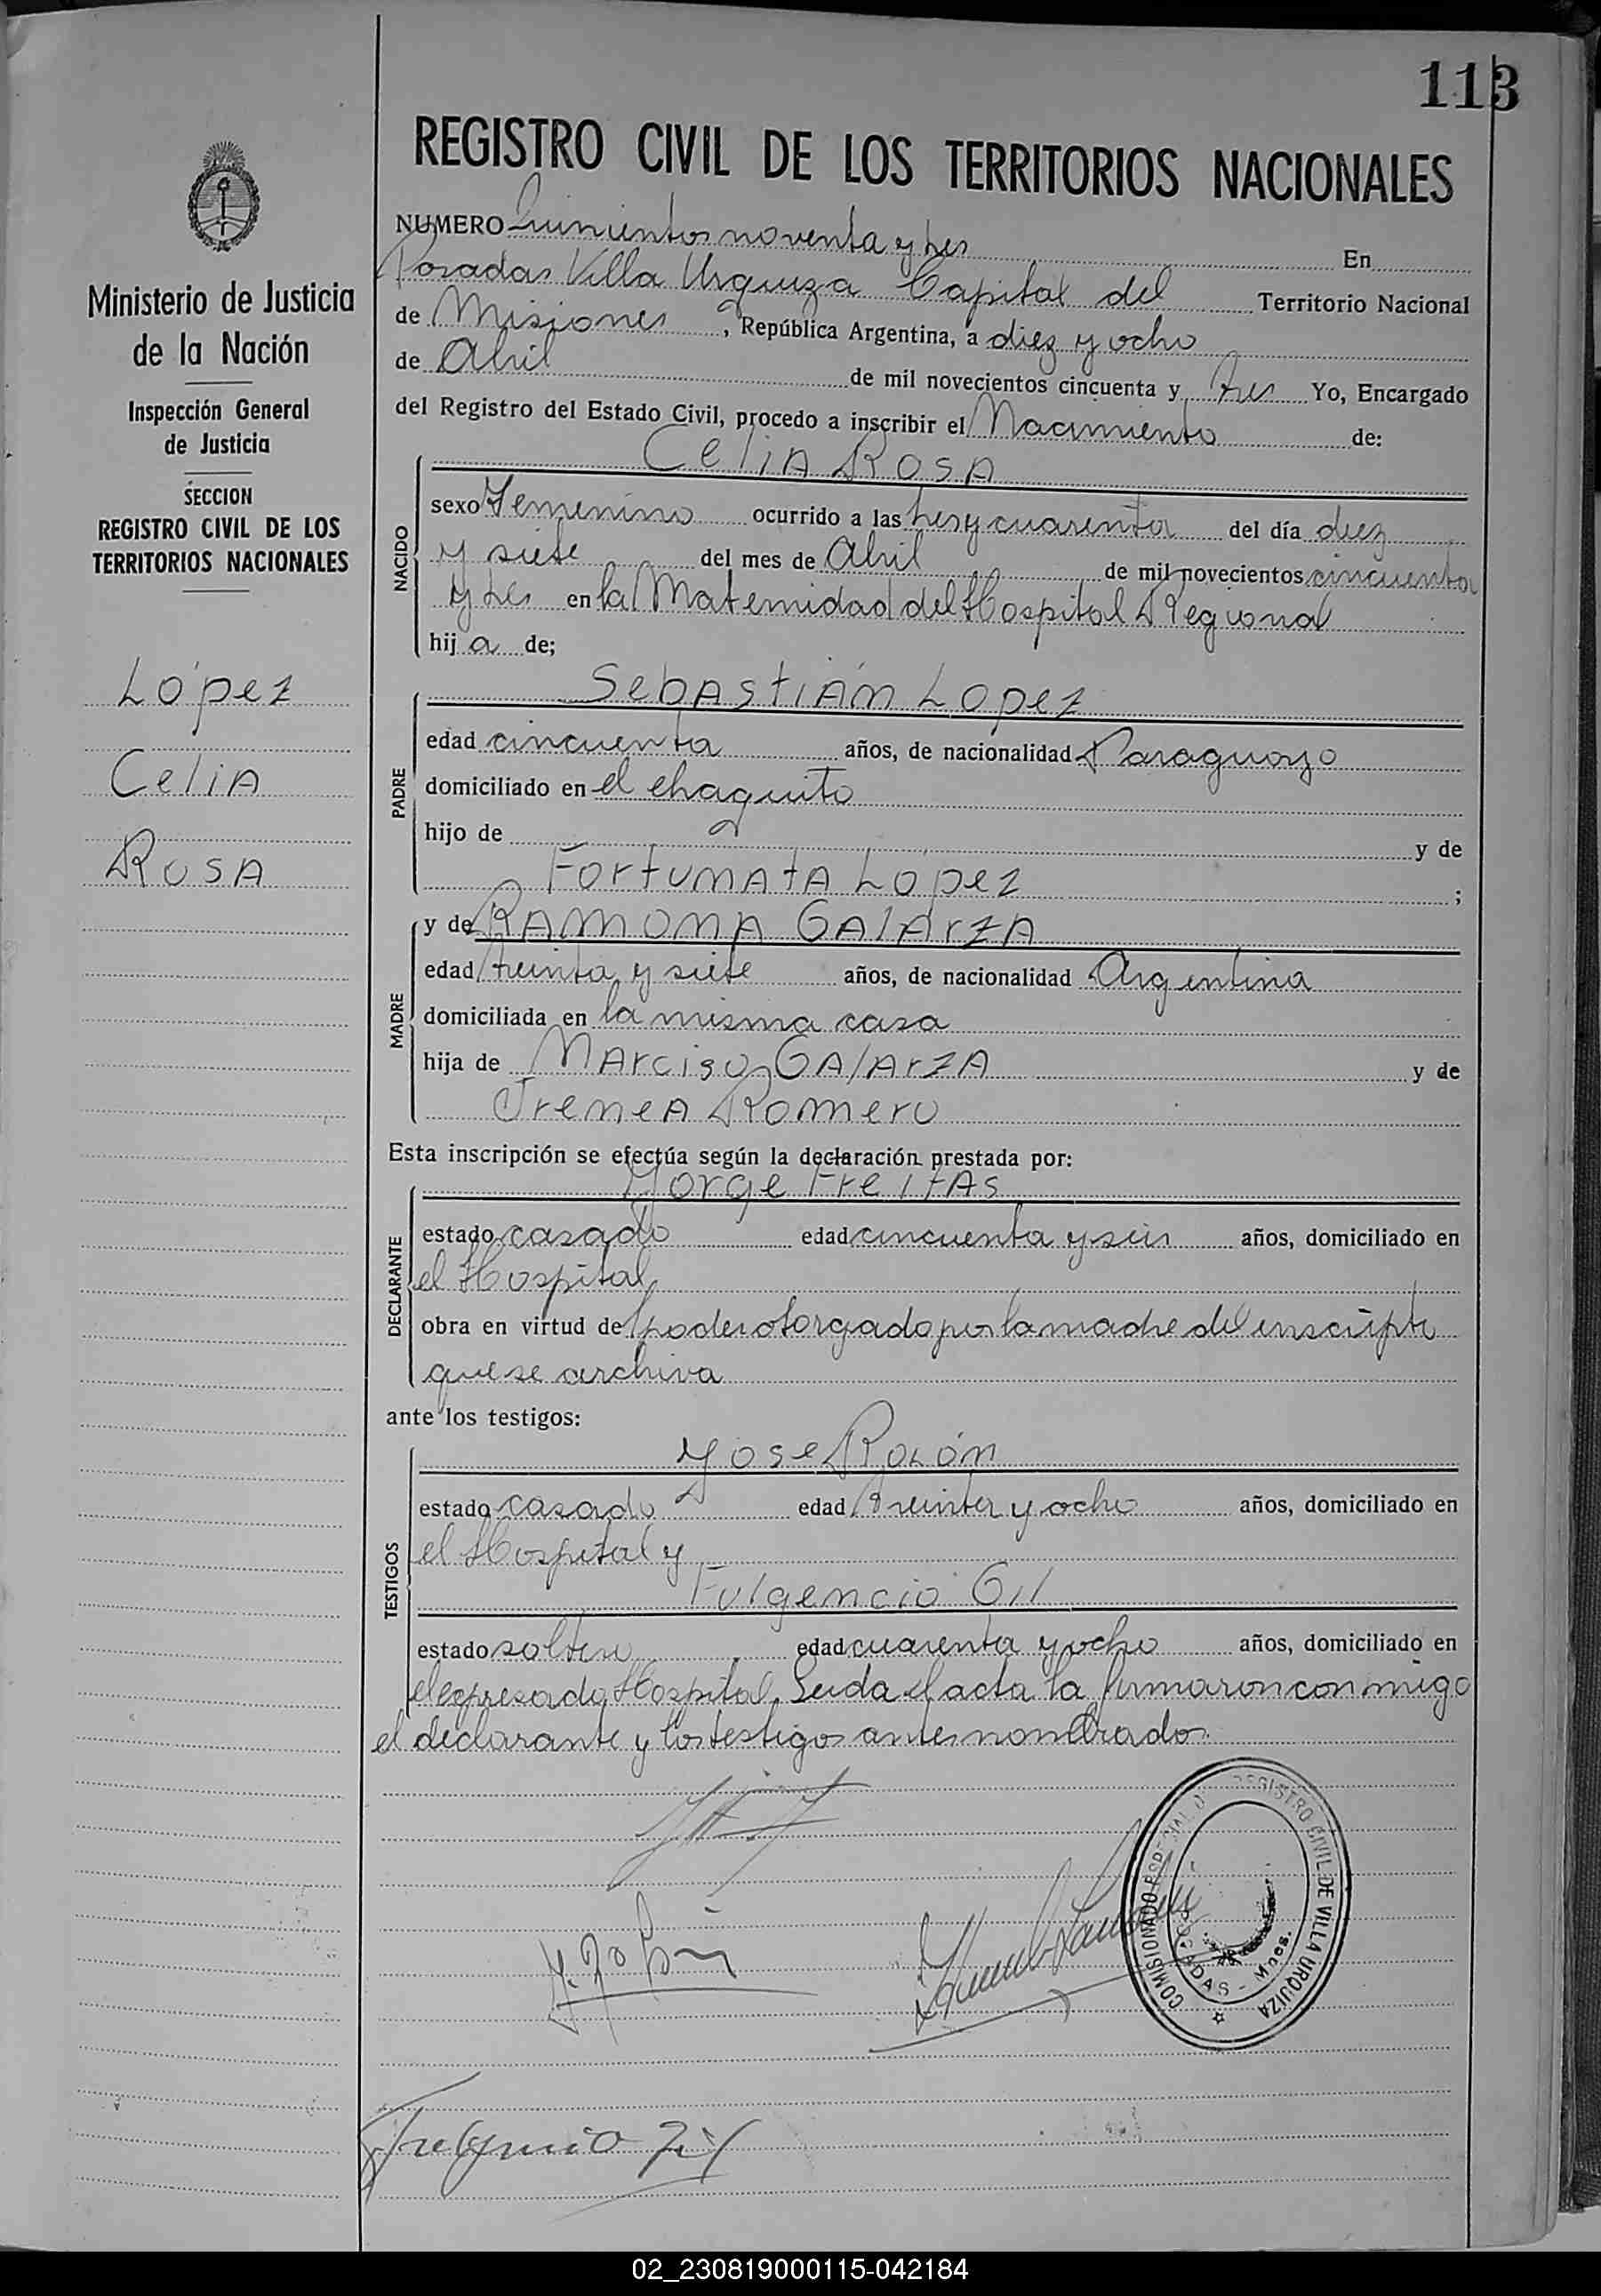 113
REGISTRO CIVIL DE LOS TERRITORIOS NACIONALES
Ministerio de Justicia
de la Nación
Inspección General
de Justicia
SECCION
REGISTRO CIVIL DE LOS
TERRITORIOS NACIONALES
López
Celia
Rosa
NUMERO Quinientos noventa y tres En
Posadas Villa Urquiza Capital del Territorio Nacional
de Misiones, República Argentina, a diez y ocho
de Abril de mil novecientos cincuenta y tres Yo, Encargado
del Registro del Estado Civil, procedo a inscribir el Nacimiento de:
Celia Rosa
NACIDO
sexo Femenino ocurrido a las tres y cuarenta del día diez
y siete del mes de Abril de mil novecientos cincuenta
y tres en la Maternidad del Hospital Regional
hij a de;
Sebastián Lopez
PADRE
edad cincuenta años, de nacionalidad Paraguayo
domiciliado en el chaquito
hijo de y de
Fortunata López ;
y de Ramona Galarza
MADRE
edad treinta y siete años, de nacionalidad Argentina
domiciliada en la misma casa
hija de Narciso Galarza y de
Irenea Romero
Esta inscripción se efectúa según la declaración prestada por:
Jorge Freitas
DECLARANTE
estado casado edad cincuenta y seis años, domiciliado en
el Hospital
obra en virtud del poder otorgado por la madre del inscripto
que se archiva
ante los testigos:
José Rolón
TESTIGOS
estado casado edad treinta y ocho años, domiciliado en
el Hospital y
Fulgencio Gil
estado soltero edad cuarenta y ocho años, domiciliado en
el expresado Hospital. Leida el acta la firmaron conmigo
el declarante y los testigos antes nombrados.
COMISIONADO REGISTRO CIVIL DE VILLA URQUIZA
POSADAS - Mnes.
J. Rolón
Fulgencio Gil
02_230819000115-042184